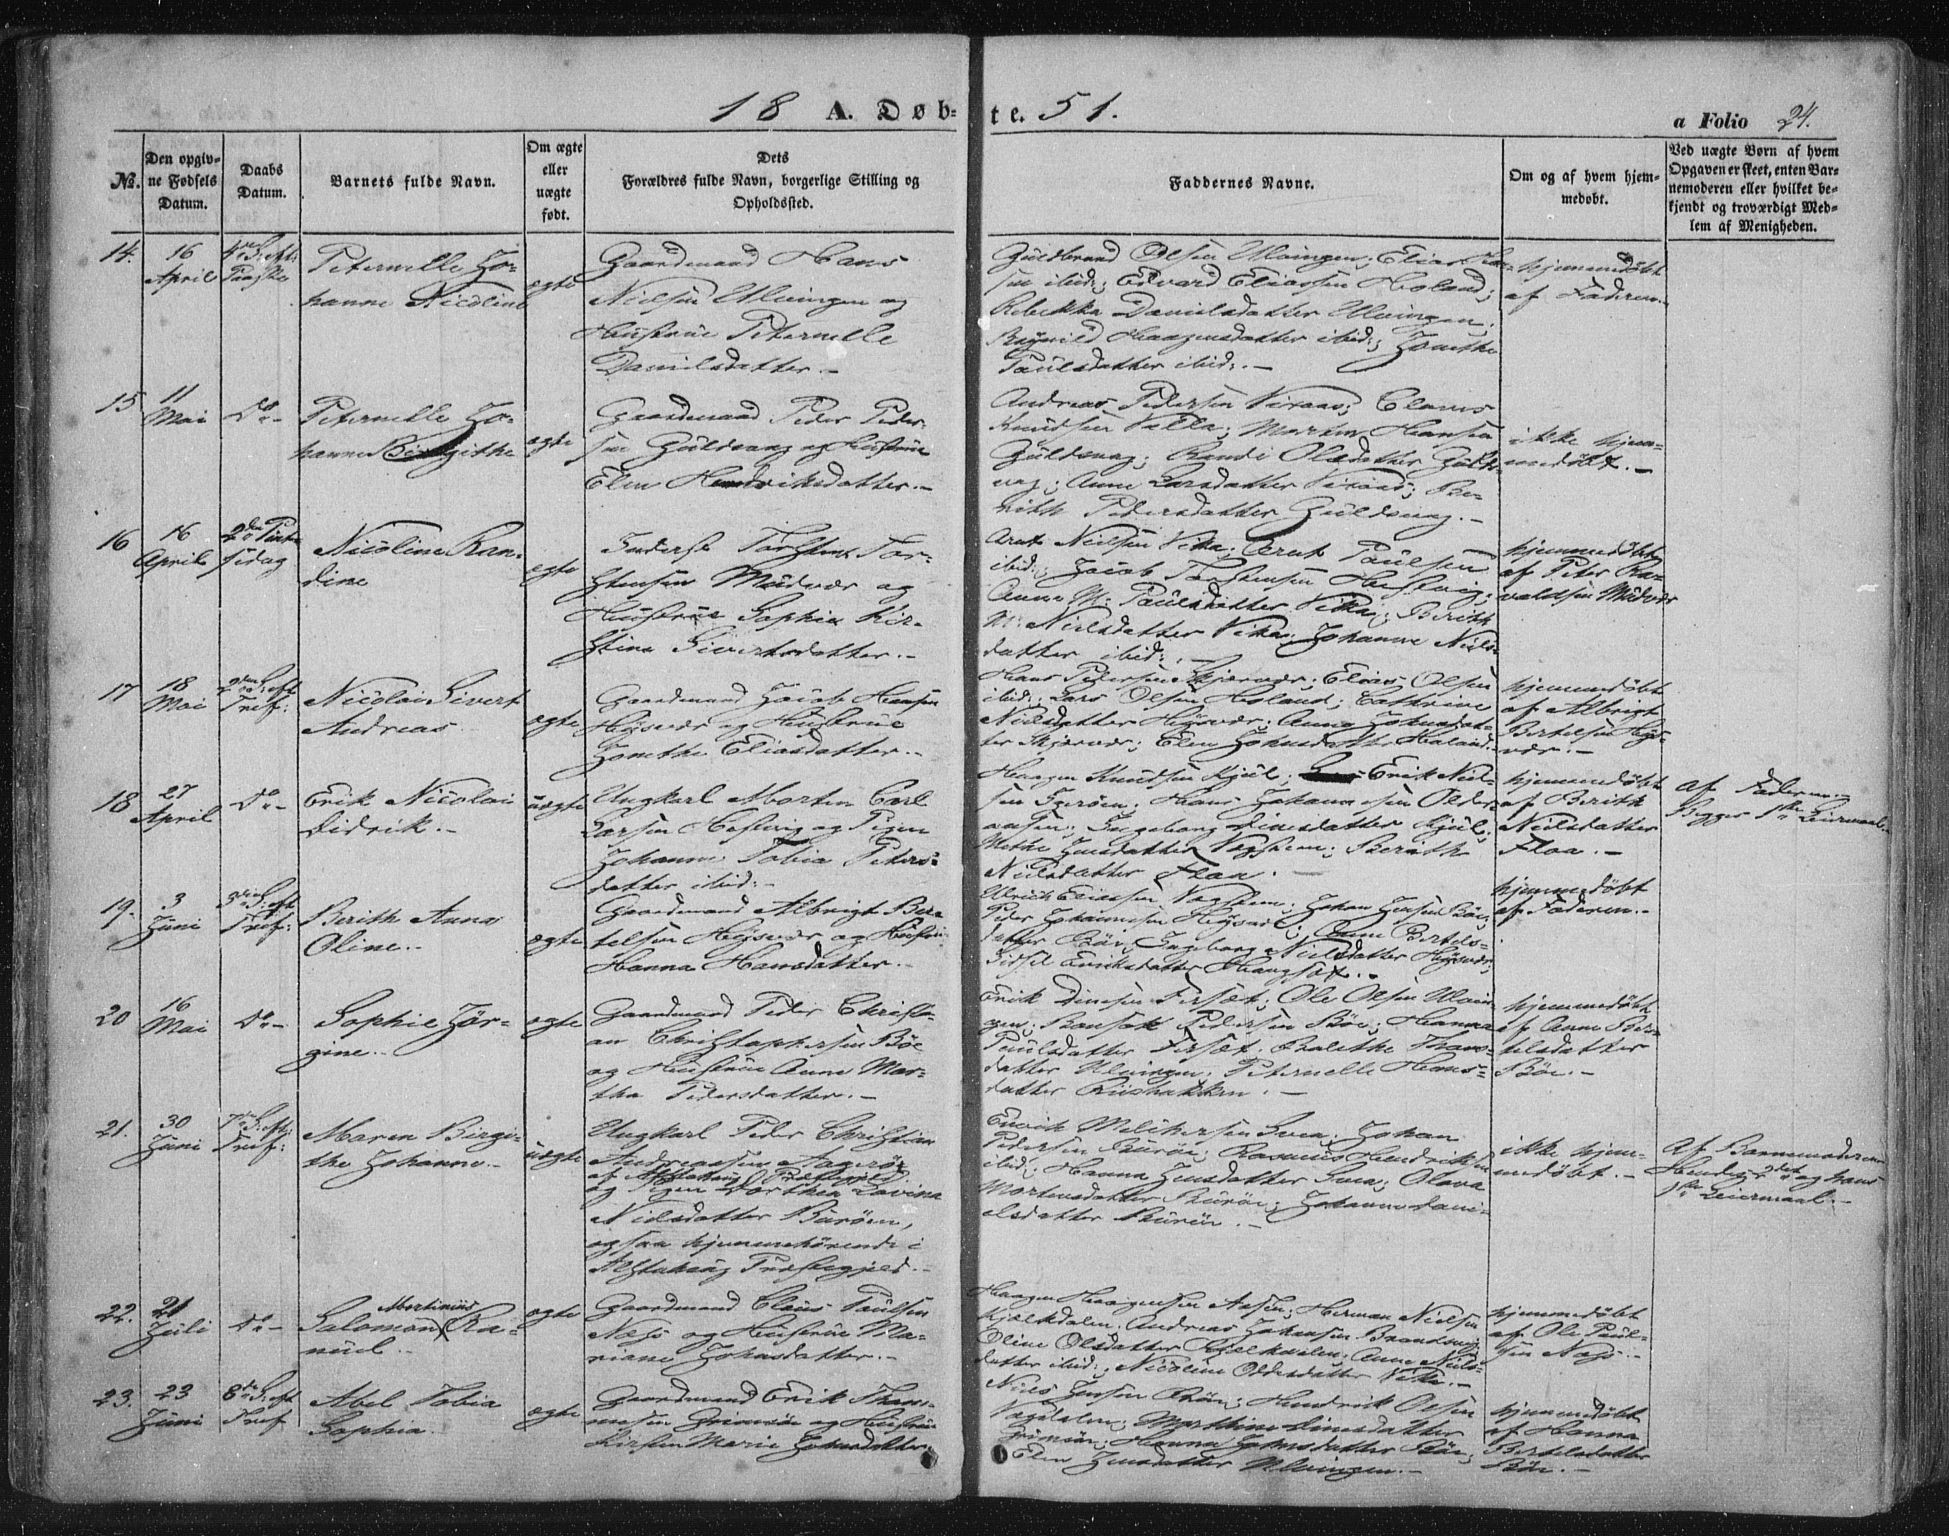 18 A. Døb-
te. 51.
a Folio 24.
No.
Den opgiv-
ne Fødsels
Datum.
Daabs
Datum.
Barnets fulde Navn.
Om ægte
eller
uægte
født.
Dets
Forældres fulde Navn, borgerlige Stilling og
Opholdssted.
Faddernes Navne.
Om og af hvem hjem-
medøbt.
Ved uægte Børn af hvem
Opgaven er skeet, enten Bar-
nemoderen eller hvilket be-
kjendt og troværdigt Med-
lem af Menigheden.
14.
16
April
4de S: eft:
Paaske
Peternelle Jo-
hanne Nicoline
ægte
Gaardmand Hans
Nielsen Ulvingen og
Hustrue Peternelle
Danielsdatter.-
Guldbrand Olsen Ulvingen; Elias
sen ibid:; Edvard Eliassen Holand;
Rebekka Danielsdatter Ulvingen;
Ragnild Haagensdatter ibid:; Jonethe
Paulsdatter ibid:.-
hjemmedøbt
af Faderen.-
15
11
Mai
Do-
Peternelle Jo-
hanne Birgithe
ægte
Gaardmand Peder Peder-
sen Guldsvag og Hustrue
Elen Hendriksdatter.-
Andreas Pedersen; Claus
Knudsen Valla; Morten Hansen
Guldsvag; Randi Olsdatter Guld-
vag; Anne Larsdatter; Be-
rith Pedersdatter Guldsvag.-
ikke hjem-
medøbt.-
16
16
April
2den Pint-
sedag
Nicoline Ran-
dine
ægte
Inderst Torsten Tor-
stensen Mudvær og
Hustrue Sophia Kir-
stine Sivertsdatter.-
Arnt Nielsen Vika; Arnt Paulsen
ibid:; Jacob Torstensen Hestvig;
Anne M: Paulsdatter Vika; Berith
M: Nielsdatter Vika; Johanne Niels-
datter ibid:.-
hjemmedøbt
af Peter
valdsen Mudvær
17
18
Mai
2den S: eft
Tref:
Nicolai Sivert
Andreas
ægte
Gaardmand Jacob Hansen
Høysvær og Hustrue
Jonethe Eliasdatter.-
Hans Pedersen Skjærvær; Elias Olsen
ibid:; Lars Olsen Holand; Cathrine
Nielsdatter Høysvær; Anna Johnsdat-
ter Skjærvær; Elen Johnsdatter Holand.-
hjemmedøbt
af Albrigt
Bertelsen Høys-
vær.-
18
27
April
Do-
Erik Nicolai
Didrik.-
uægte
Ungkarl Morten Carl
Larsen Hestvig og Pigen
Johanne Tobia Peders-
datter ibid:-
Haagen Knudsen Kjul; Erik Niel-
sen Igerøen; Hans Johannesen Older-
; Ingeborg Dinesdatter Kjul;
Methe Jensdatter Vagthem; Berith
Nielsdatter Floa.-
hjemmedøbt
af Berith
Nielsdatter
Floa.-
af Faderen.-
Begges 1ste Leiermaal.-
19.
3
Juni
3die S: eft
Tref:
Berith Anna
Oline.-
ægte
Gaardmand Albrigt Ber-
telsen Høysvær og Hustrue
Hanna Hansdatter.-
Ulrich Eliassen Vagthem; Johan Jensen Bøe;
Peder Johannesen Høysvær; Anne Bertels-
datter Bøe; Ingeborg Nielsdatter Høysvær;
Sidsel Eriksdatter Haugsøt.-
hjemmedøbt
af Faderen.-
20
16
Mai
Do-
Sophie Jør-
gine.-
ægte
Gaardmand Peder Christi-
an Christophersen Bøe
og Hustrue Anne Mar-
tha Pedersdatter.-
Erik Dinesen Forsæt; Ole Olsen Ulvin-
gen; Pedersen Bøe; Hanna
Paulsdatter Forsæt; Hans-
datter Ulvingen; Peternelle Hans-
datter Riishakken.-
hjemmedøbt
af Anne Ber-
telsdatter
Bøe.-
21.
30
Juni
7de S: eft:
Tref:
Maren Birgi-
the Johanne.-
uægte
Ungkarl Peder Christian
Andreassen
af Alstahaug Præstegjeld
og Pigen Dorthea Lavina
Nielsdatter Burøen,
ogsaa hjemmehørende i
Alstahaug Præstegjeld.-
Melkersen Svea; Johan
Pedersen Burøe; Rasmus Hendriksen
ibid:; Hanna Jensdatter Svea; Olava
Mortensdatter Burøe; Johanna Dani-
elsdatter Burøen.-
ikke hjem-
medøbt.-
Af Barnemoderen
Hendes 2det og hans
1ste Leiermaal.-
22.
21
Juli
Do-
Salomon Martinius Ra-
nuel.-
ægte
Gaardmand Claus Paulsen
Næss og Hustrue Ma-
riane Johnsdatter.-
Haagen Haagensen Aasen; Herman Nielsen
Kjælkdalen; Andreas Johansen Brandsvig;
Oline Olsdatter Kjælkdalen; Anne Niels-
datter ibid:; Nicoline Oldesdatter Vika.-
hjemmedøbt
af Ole Paul-
sen Næss.-
23.
23
Juni
8de S: eft
Tref
Abel Tobia
Sophia.
ægte
Gaardmand Erik Tham-
mesen Grimsøe og Hustrue
Kirsten Marie Johnsdatter.-
Niels Jensen Bøe; Hendrik Olsen
Vagdalen; Marthine Dinesdatter
Grimsøe; Hanna Johnsdatter Bøe;
Elen Jensdatter Ulvingen.-
hjemmedøbt
af Hanna
Bertelsdatter
Bøe.-